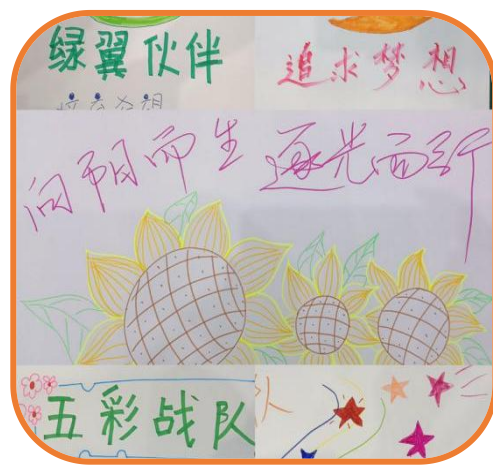 绿翼伙伴
追求梦想
向阳而生 逐光而行
五彩战队